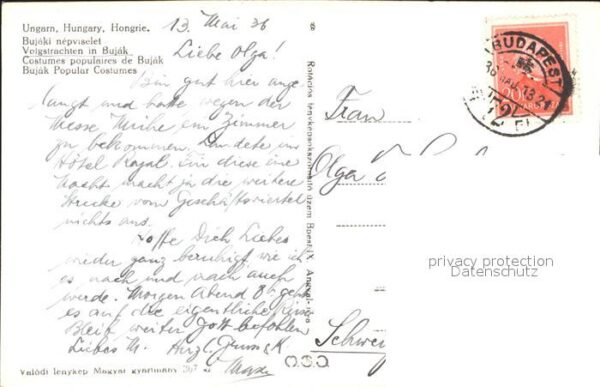 Ungarn, Hungary, Hongrie.
Bujáki népviselet
Volgstrachten in Buják
Costumes populaires de Buják
Buják Popular Costumes
13. Mai 36
Liebe Olga!
Bin gut hier ange-
langt und hatte wegen der
Messe Mühe ein Zimmer
zu bekommen.
Hôtel Royal. Für diese eine
Nacht macht ja die weitere
Strecke vom Geschäftsviertel
nichts aus.
Hoffe Dich Liebes
wieder ganz beruhigt wie ich
es nach und nach auch
werde. Morgen Abend 8h geht
es auf die eigentliche Reise
Bleib weiter Gott befohlen
Liebes M. Herzl. Gruss & K
Valódi fénykép Magyar gyártmány
Frau
Olga
Schwei
BUDAPEST
privacy protection
Datenschutz